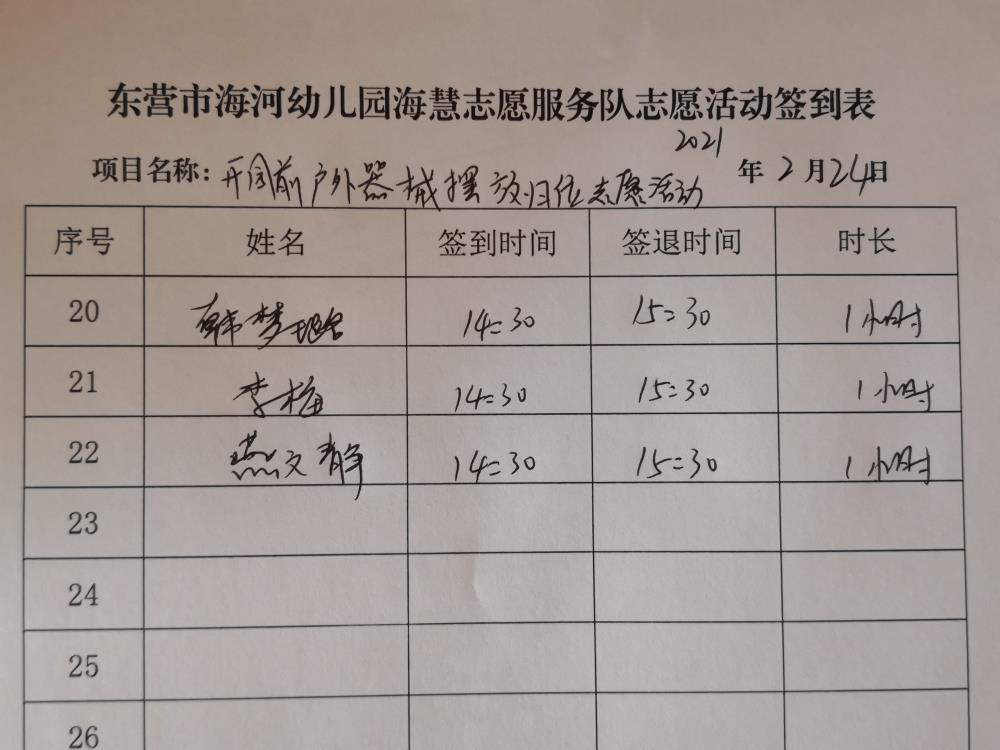 东营市海河幼儿园海慧志愿服务队志愿活动签到表
项目名称：开园前户外器械摆放归位志愿活动 2021年2月24日
序号 姓名 签到时间 签退时间 时长
20 韩梦 14:30 15:30 1小时
21 李梅 14:30 15:30 1小时
22 燕文静 14:30 15:30 1小时
23
24
25
26